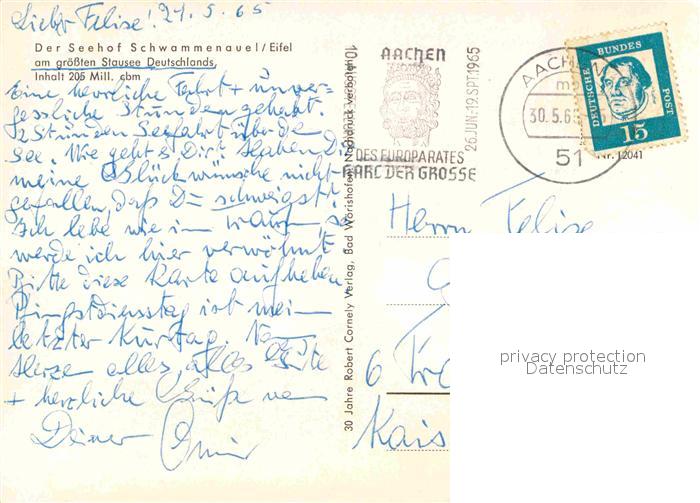 Lieber Felise! 29.5.65
Der Seehof Schwammenauel/Eifel
am größten Stausee Deutschlands,
Inhalt 205 Mill. cbm
Eine herrliche Fahrt + unver-
gessliche Stunden gehabt.
2 Stunden Seefahrt über die
See. Wie geht's Dir? Haben Dir
meine Glückwünsche nicht
gefallen, daß Du schweigst?
Ich lebe wie im Traum, so
werde ich hier verwöhnt
Bitte diese Karte aufheben
Pfingstdienstag ist mein
letzter Kurtag. Von
Herzen alles, alles Gute
+ herzliche Grüße von
Deiner Omi
30 Jahre Robert Cornely Verlag, Bad Wörishofen Nachdruck verboten
AACHEN
26.JUN.-19.SPT.1965
DES EUROPARATES
KARL DER GROSSE
AACHEN
30.5.65
51
DEUTSCHE BUNDESPOST
15
Nr. 12041
Herrn Felise
6
Kais
privacy protection
Datenschutz